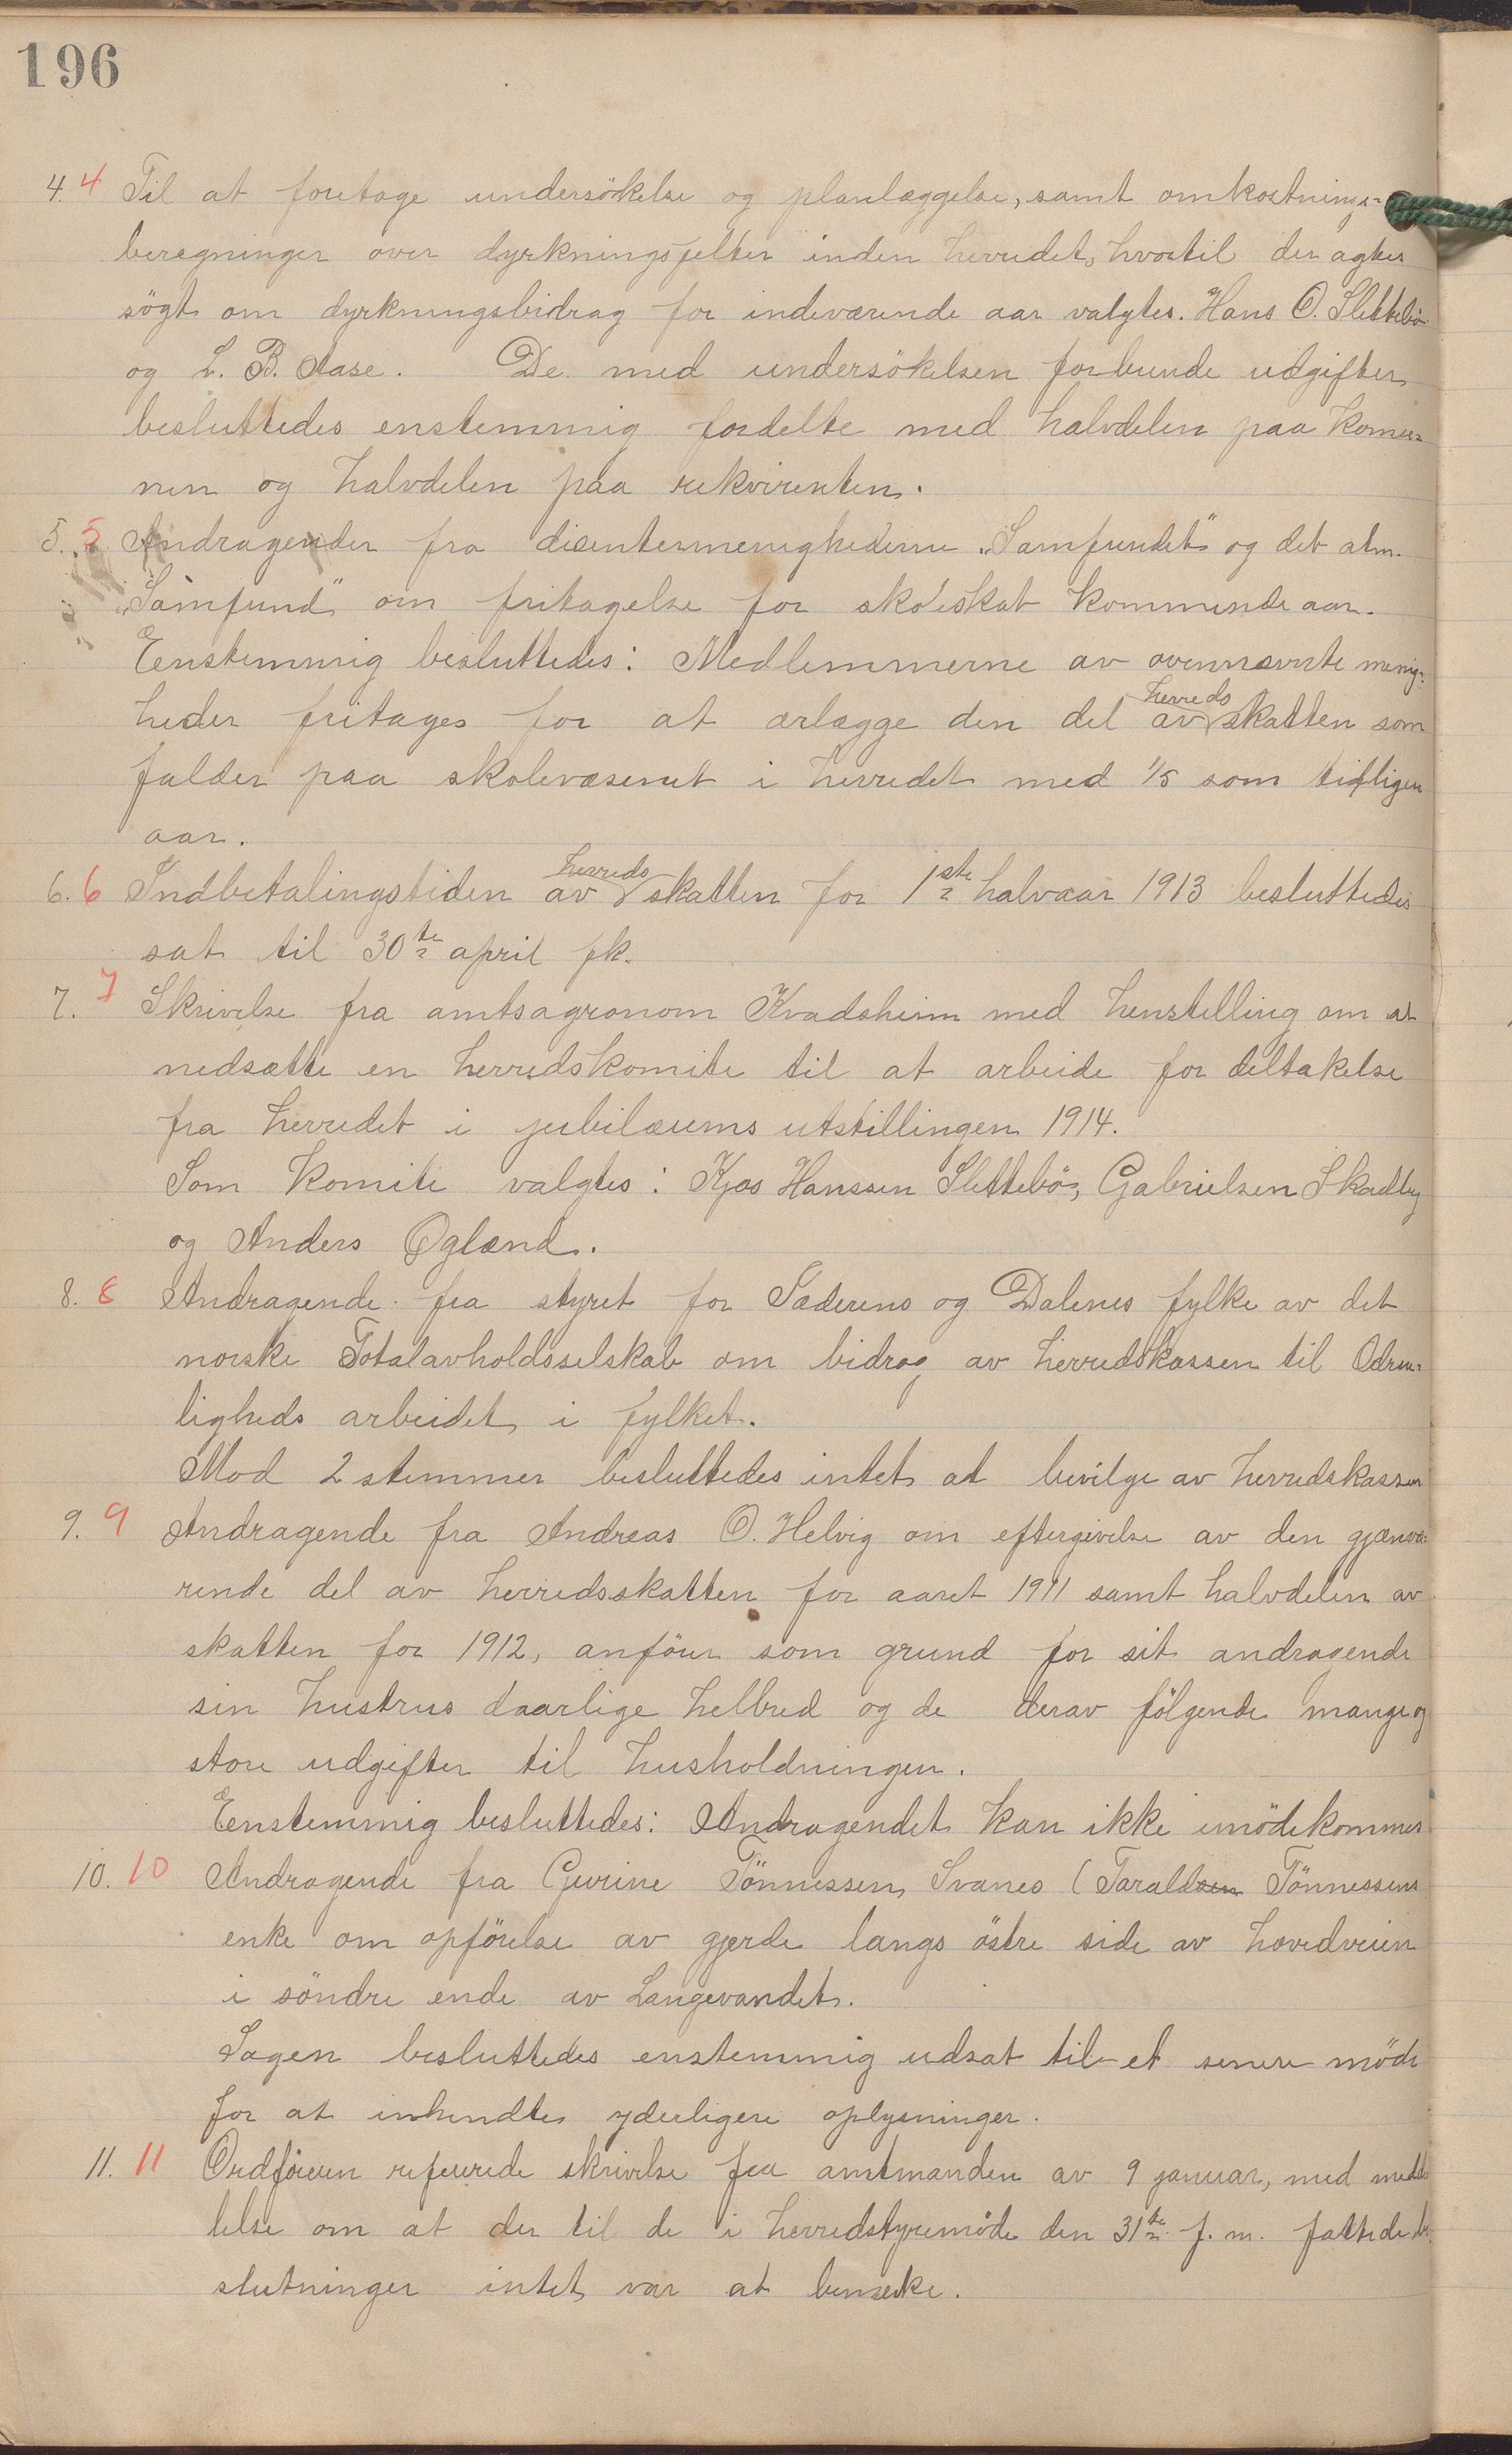 196
4. 4 Til at foretage undersökelse og planlæggelse, samt omkostnings-
beregninger over dyrkningsfelter inden herredet, hvortil der agtes
søgt om dyrkningsbidrag for indeværende aar valgtes. Hans O. Slettebö
og L. B. Aase. De med undersökelsen forbunde udgifter
besluttedes enstemmig fordelte med halvdelen paa komu-
nen og halvdelen paa rekvirenten.
5. 5 Andragender fra disentermenighederne "Samfundet" og det alm.
"Samfund" om fritagelse for skoleskat kommende aar.
Eenstemmig besluttedes: Medlemmerne av ovennævnte menig-
heder fritages for at ærlægge den del av herredsskatten som
falder paa skolevæsenet i herredet med 1/5 som tidligere
aar.
6. 6 Indbetalingstiden av herredsskatten for 1ste halvaar 1913 besluttedes
sat til 30te april fk.
7. 7 Skrivelse fra amtsagronom Kvadsheim med henstilling om at
nedsætte en herredskomite til at arbeide for deltakelse
fra herredet i jubilæums utstillingen 1914.
Som komite valgtes: Kjos Hanssen Slettebö, Gabrielsen Skadberg
og Anders Ogland.
8. 8 Andragende fra styret for Jæderens og Dalenes fylke av det
norske Totalavholdsselskab om bidrag av herredskassen til Ædru-
ligheds arbeidet i fylket.
Mod 2 stemmer besluttedes intet at bevilge av herredskassen
9. 9 Andragende fra Andreas O. Helvig om eftergivelse av den gjenvæ-
rende del av herredsskatten for aaret 1911 samt halvdelen av
skatten for 1912, anförer som grund for sit andragende
sin hustrus daarlige helbred og de derav fölgende mange og
store udgifter til husholdningen.
Eenstemmig besluttedes: Andragendet kan ikke imödekommes
10. 10 Andragende fra Gurine Tönnessen, Svanes (Taraldsen Tönnessens
enke om opförelse av gjerde langs östre side av hovedveien
i söndre ende av Langevandet.
Sagen besluttedes enstemmig udsat til et senere möde
for at inhendtes yderligere oplysninger.
11. 11 Ordföreren refererede skrivelse fra amtmanden av 9 januar, med medde
lelse om at der til de i herredstyremöde den 31te f. m. fattede be
slutninger intet var at bemerke.